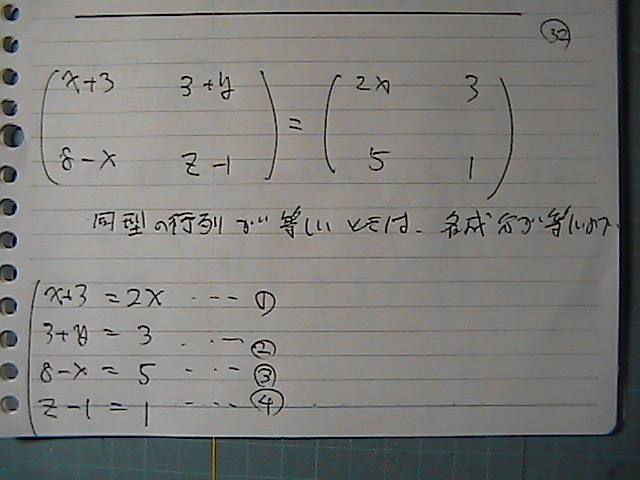 32
( x+3 3+y ) = ( 2x 3 )
( 8-x z-1 ) ( 5 1 )
同型の行列が等しいときは、各成分が等しいので、
x+3 = 2x ・・・ ①
3+y = 3 ・・・ ②
8-x = 5 ・・・ ③
z-1 = 1 ・・・ ④